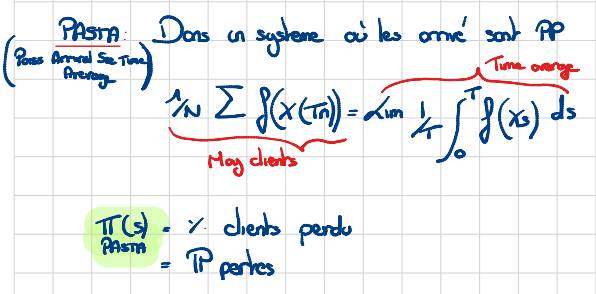 PASTA: Dans un systeme où les arrivé sont PP
(Poiss Arrival See Time
Average)
Time average
1/N Σ f(X(Tn)) = Lim 1/T ∫₀ᵀ f(Xs) ds
Moy clients
π(s) = % clients perdu
PASTA
= ℙ pertes